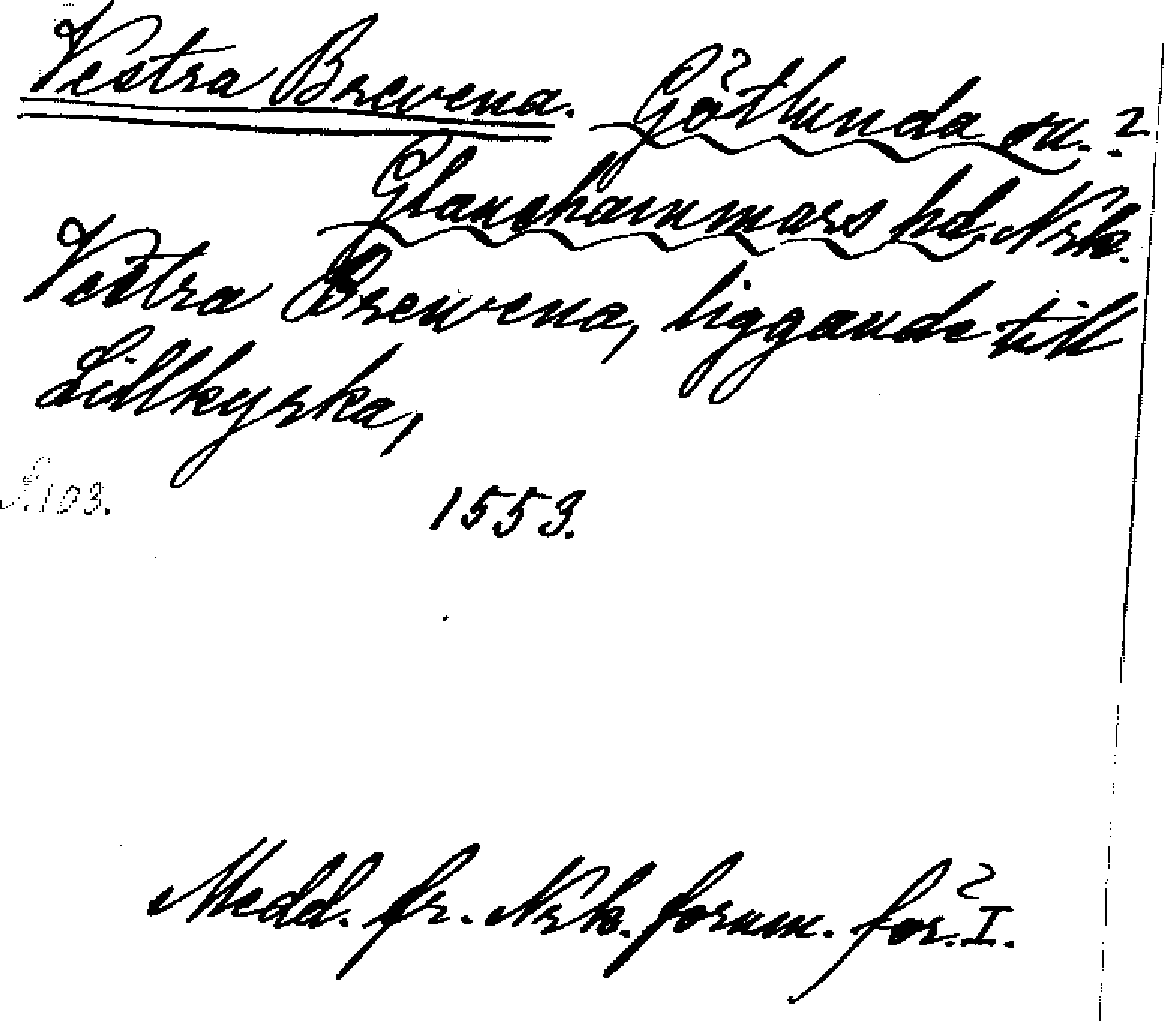 Vestra Brevena. Götlunda sn.?
Glanshammars hd, Nrk.
Vestra Brewena, liggande till
Lillkyrka,
S. 103.
1553.
Medd. fr. Nrk. fornm. för. I.